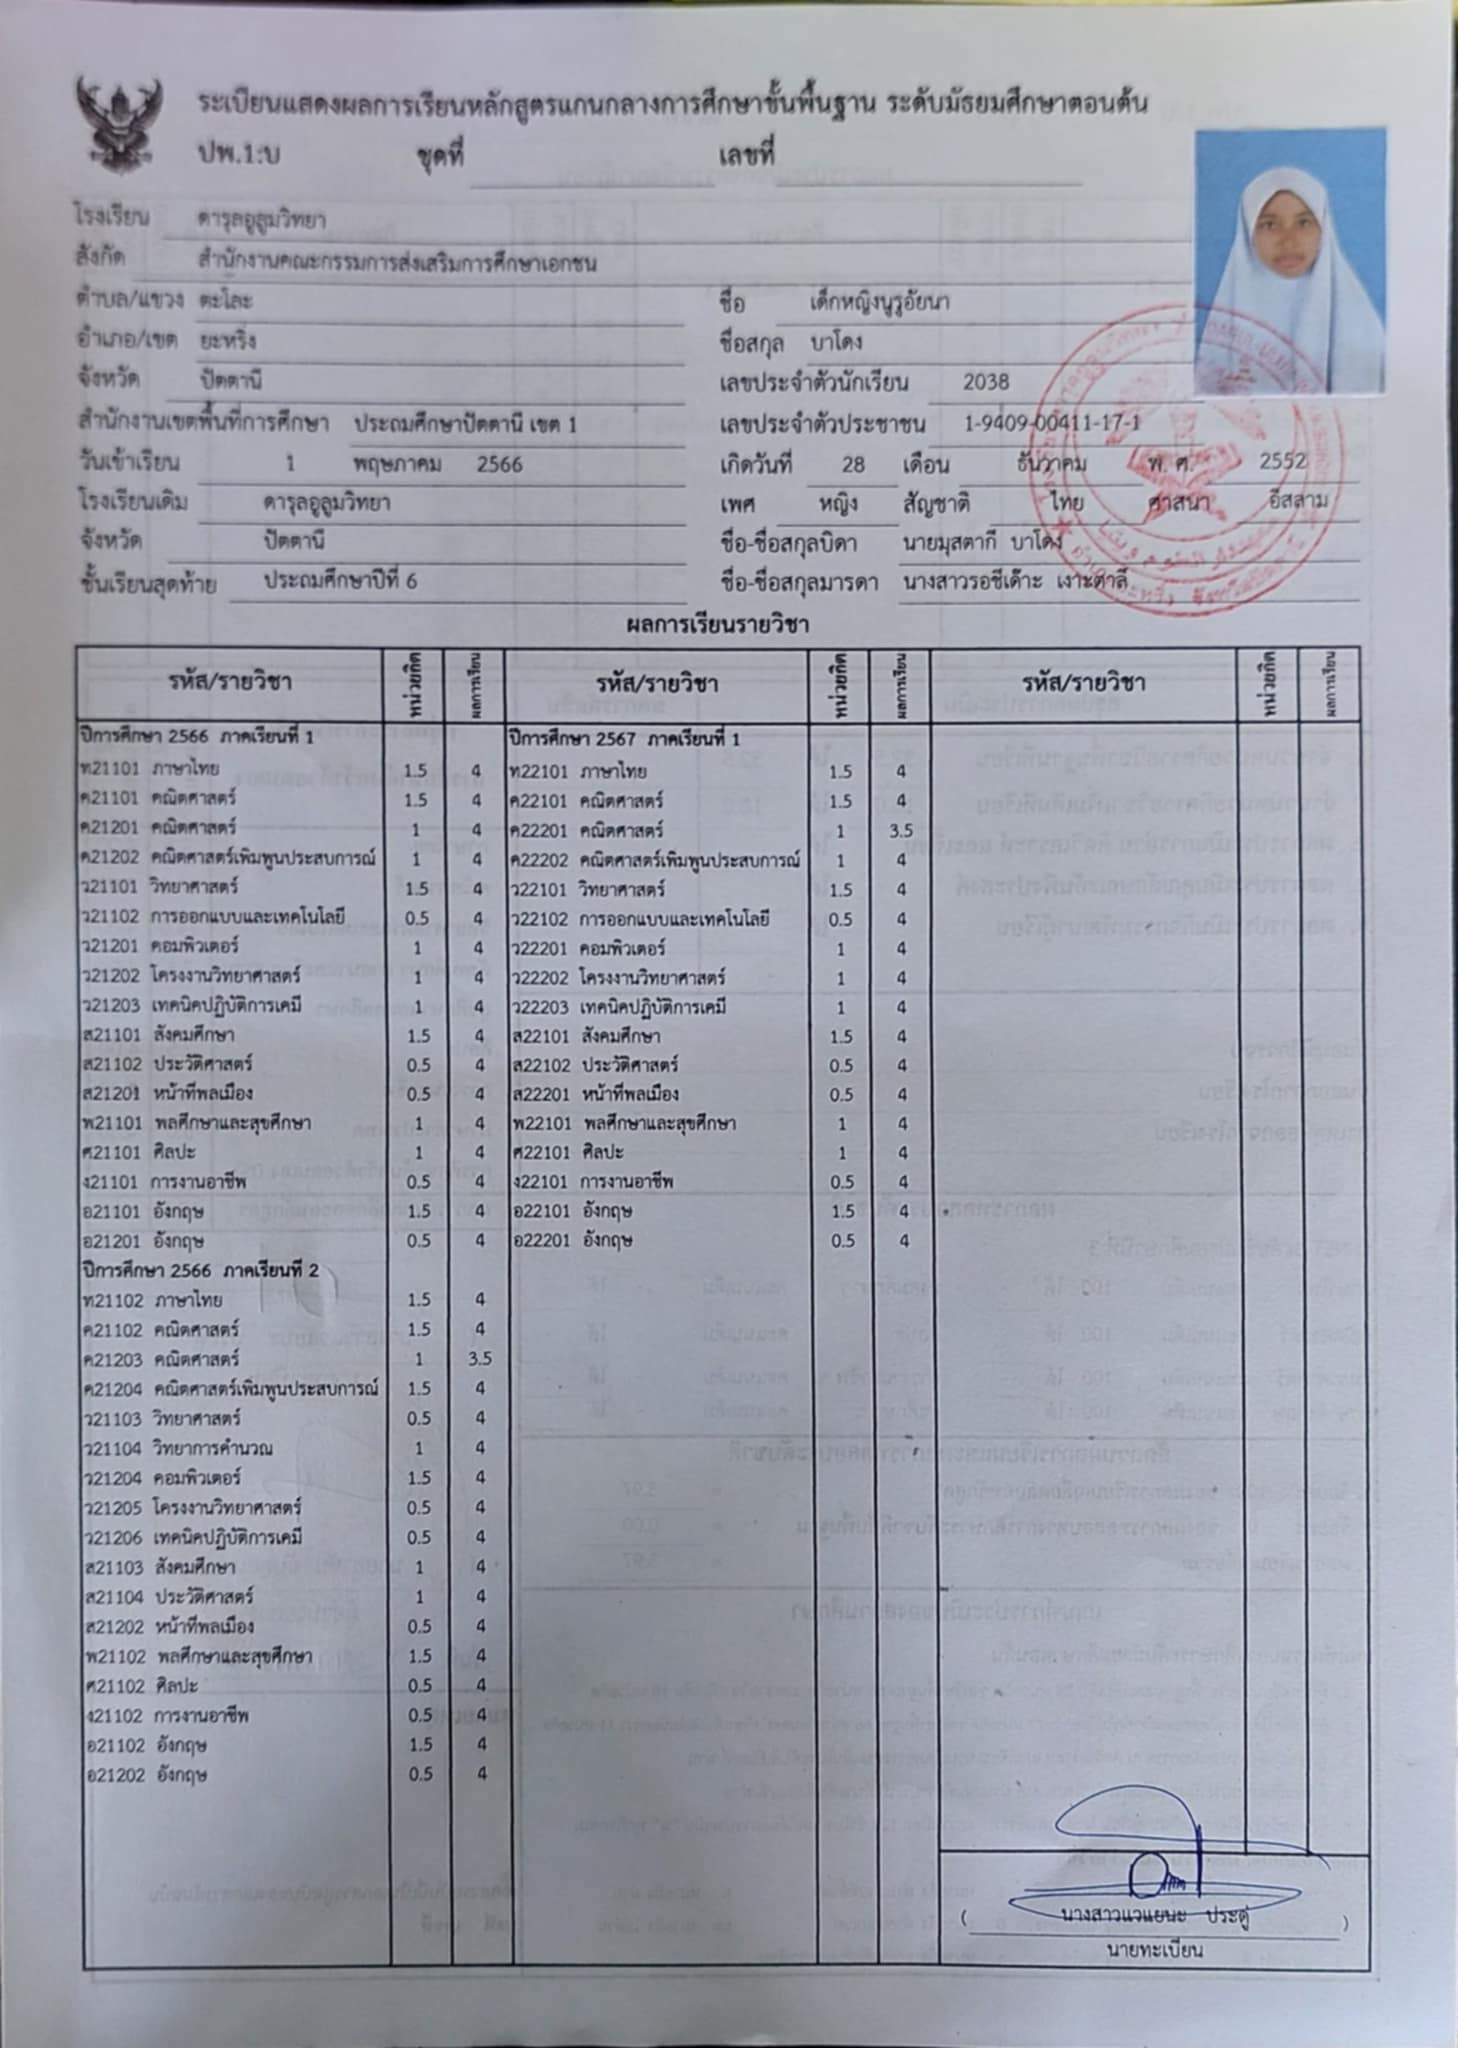 ระเบียนแสดงผลการเรียนหลักสูตรแกนกลางการศึกษาขั้นพื้นฐาน ระดับมัธยมศึกษาตอนต้น
ปพ.1:บ ชุดที่ เลขที่
โรงเรียน ดารุลอูลูมวิทยา
สังกัด สำนักงานคณะกรรมการส่งเสริมการศึกษาเอกชน
ตำบล/แขวง ตะโละ
อำเภอ/เขต ยะหริ่ง
จังหวัด ปัตตานี
สำนักงานเขตพื้นที่การศึกษา ประถมศึกษาปัตตานี เขต 1
วันเข้าเรียน 1 พฤษภาคม 2566
โรงเรียนเดิม ดารุลอูลูมวิทยา
จังหวัด ปัตตานี
ชั้นเรียนสุดท้าย ประถมศึกษาปีที่ 6
ชื่อ เด็กหญิงนูรูอัยนา
ชื่อสกุล บาโดง
เลขประจำตัวนักเรียน 2038
เลขประจำตัวประชาชน 1-9409-00411-17-1
เกิดวันที่ 28 เดือน ธันวาคม พ.ศ. 2552
เพศ หญิง สัญชาติ ไทย ศาสนา อิสลาม
ชื่อ-ชื่อสกุลบิดา นายมุสตากี บาโดง
ชื่อ-ชื่อสกุลมารดา นางสาวรอซีเด๊าะ เงาะตาลี
ผลการเรียนรายวิชา
รหัส/รายวิชา หน่วยกิต ผลการเรียน รหัส/รายวิชา หน่วยกิต ผลการเรียน รหัส/รายวิชา หน่วยกิต ผลการเรียน
ปีการศึกษา 2566 ภาคเรียนที่ 1
ท21101 ภาษาไทย 1.5 4
ค21101 คณิตศาสตร์ 1.5 4
ค21201 คณิตศาสตร์ 1 4
ค21202 คณิตศาสตร์เพิ่มพูนประสบการณ์ 1 4
ว21101 วิทยาศาสตร์ 1.5 4
ว21102 การออกแบบและเทคโนโลยี 0.5 4
ว21201 คอมพิวเตอร์ 1 4
ว21202 โครงงานวิทยาศาสตร์ 1 4
ว21203 เทคนิคปฏิบัติการเคมี 1 4
ส21101 สังคมศึกษา 1.5 4
ส21102 ประวัติศาสตร์ 0.5 4
ส21201 หน้าที่พลเมือง 0.5 4
พ21101 พลศึกษาและสุขศึกษา 1 4
ศ21101 ศิลปะ 1 4
ง21101 การงานอาชีพ 0.5 4
อ21101 อังกฤษ 1.5 4
อ21201 อังกฤษ 0.5 4
ปีการศึกษา 2566 ภาคเรียนที่ 2
ท21102 ภาษาไทย 1.5 4
ค21102 คณิตศาสตร์ 1.5 4
ค21203 คณิตศาสตร์ 1 3.5
ค21204 คณิตศาสตร์เพิ่มพูนประสบการณ์ 1.5 4
ว21103 วิทยาศาสตร์ 0.5 4
ว21104 วิทยาการคำนวณ 1 4
ว21204 คอมพิวเตอร์ 1.5 4
ว21205 โครงงานวิทยาศาสตร์ 0.5 4
ว21206 เทคนิคปฏิบัติการเคมี 0.5 4
ส21103 สังคมศึกษา 1 4
ส21104 ประวัติศาสตร์ 1 4
ส21202 หน้าที่พลเมือง 0.5 4
พ21102 พลศึกษาและสุขศึกษา 1.5 4
ศ21102 ศิลปะ 0.5 4
ง21102 การงานอาชีพ 0.5 4
อ21102 อังกฤษ 1.5 4
อ21202 อังกฤษ 0.5 4
ปีการศึกษา 2567 ภาคเรียนที่ 1
ท22101 ภาษาไทย 1.5 4
ค22101 คณิตศาสตร์ 1.5 4
ค22201 คณิตศาสตร์ 1 3.5
ค22202 คณิตศาสตร์เพิ่มพูนประสบการณ์ 1 4
ว22101 วิทยาศาสตร์ 1.5 4
ว22102 การออกแบบและเทคโนโลยี 0.5 4
ว22201 คอมพิวเตอร์ 1 4
ว22202 โครงงานวิทยาศาสตร์ 1 4
ว22203 เทคนิคปฏิบัติการเคมี 1 4
ส22101 สังคมศึกษา 1.5 4
ส22102 ประวัติศาสตร์ 0.5 4
ส22201 หน้าที่พลเมือง 0.5 4
พ22101 พลศึกษาและสุขศึกษา 1 4
ศ22101 ศิลปะ 1 4
ง22101 การงานอาชีพ 0.5 4
อ22101 อังกฤษ 1.5 4
อ22201 อังกฤษ 0.5 4
( นางสาวแวแยนะ ประดู่ )
นายทะเบียน